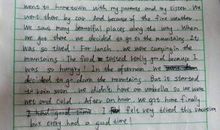 went to hometown with my parents and my sister. We
went there by car. And because of the fine weather
we saw many beautiful places along the way. When
we got there we decided to go to the mountains. It
was so tired! For lunch, we were camping in the
mountains. The food tasted really good because I
was so hungry! In the afternoon, we
decided to go down the mountains. But it started
to rain soon. We didn't have an umbrella so we were
wet and cold. After an hour, we got home finally
I felt very tired this vacation
but enjoy had a good time!